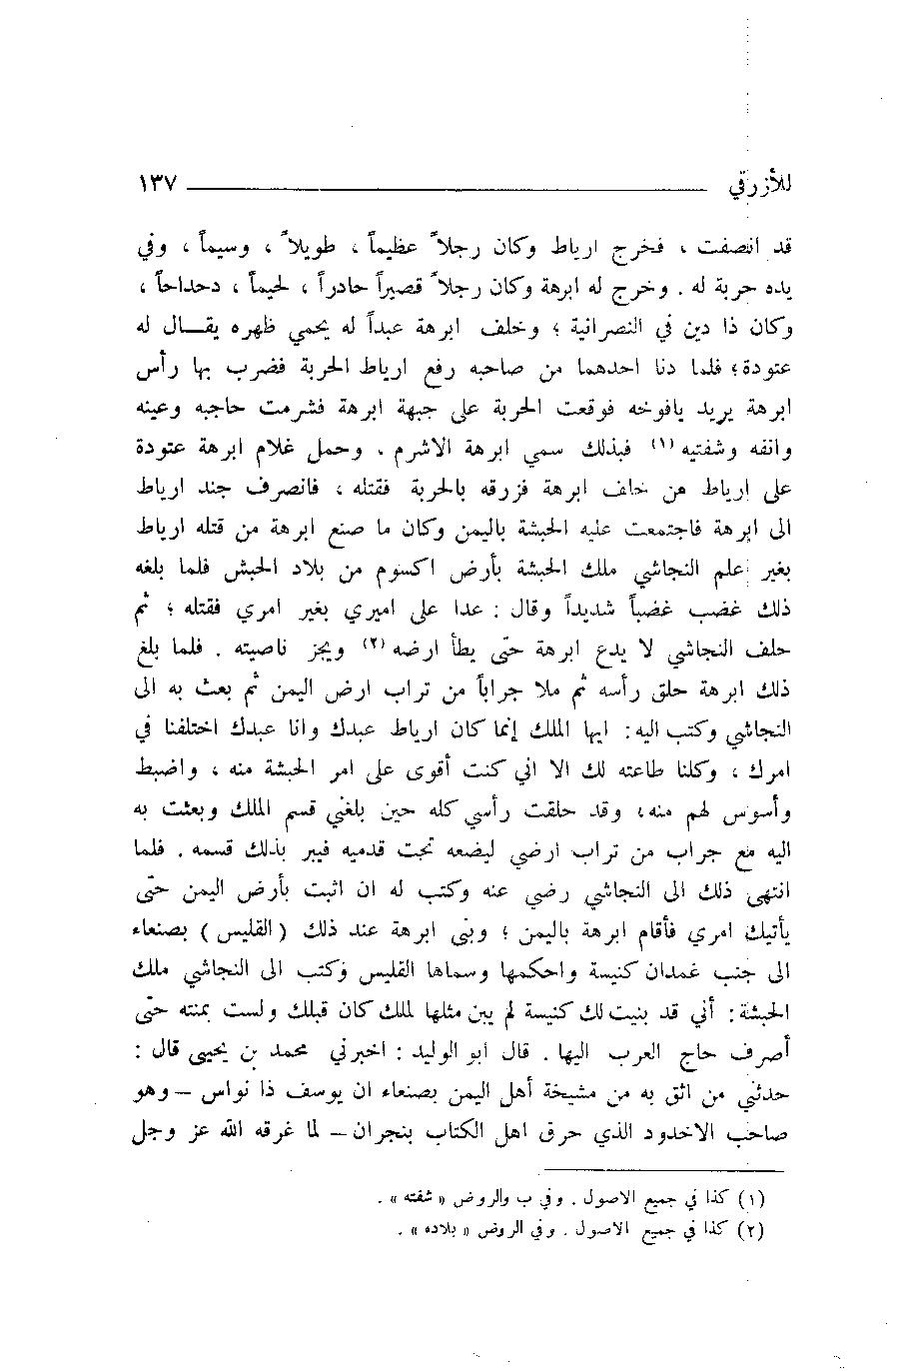 للأزرقي ١٣٧
قد انصفت ، فخرج ارياط وكان رجلاً عظيماً ، طويلاً ، وسيماً ، وفي
يده حربة له . وخرج له ابرهة وكان رجلاً قصيراً حادراً ، لحيماً ، دحداحاً ،
وكان ذا دين في النصرانية ؛ وخلف ابرهة عبداً له يحمي ظهره يقـــال له
عتودة ؛ فلما دنا احدهما من صاحبه رفع ارياط الحربة فضرب بها رأس
ابرهة يريد يافوخه فوقعت الحربة على جبهة ابرهة فشرمت حاجبه وعينه
وانفه وشفتيه (١) فبذلك سمي ابرهة الاشرم . وحمل غلام ابرهة عتودة
على ارياط من خلف ابرهة فزرقه بالحربة فقتله ، فانصرف جند ارياط
الى ابرهة فاجتمعت عليه الحبشة باليمن وكان ما صنع ابرهة من قتله ارياط
بغير علم النجاشي ملك الحبشة بأرض اكسوم من بلاد الحبش فلما بلغه
ذلك غضب غضباً شديداً وقال : عدا على اميري بغير امري فقتله ؛ ثم
حلف النجاشي لا يدع ابرهة حتّى يطأ ارضه (٢) ويجز ناصيته . فلما بلغ
ذلك ابرهة حلق رأسه ثم ملا جراباً من تراب ارض اليمن ثم بعث به الى
النجاشي وكتب اليه : ايها الملك إنما كان ارياط عبدك وانا عبدك اختلفنا في
امرك ، وكلنا طاعته لك الا اني كنت أقوى على امر الحبشة منه ، واضبط
وأسوس لهم منه ، وقد حلقت رأسي كله حين بلغني قسم الملك وبعثت به
اليه مع جراب من تراب ارضي ليضعه تحت قدميه فيبر بذلك قسمه . فلما
انتهى ذلك الى النجاشي رضي عنه وكتب له ان اثبت بأرض اليمن حتّى
يأتيك امري فأقام ابرهة باليمن ؛ وبنى ابرهة عند ذلك ( القليس ) بصنعاء
الى جنب غمدان كنيسة واحكمها وسماها القليس وكتب الى النجاشي ملك
الحبشة : أني قد بنيت لك كنيسة لم يبن مثلها لملك كان قبلك ولست بمنته حتّى
أصرف حاج العرب اليها . قال ابو الوليد : اخبرني محمد بن يحيى قال :
حدثني من اثق به من مشيخة أهل اليمن بصنعاء ان يوسف ذا نواس – وهو
صاحب الاخدود الذي حرق اهل الكتاب بنجران – لما غرقه الله عز وجل
(١) كذا في جميع الاصول . وفي ب والروض « شفته » .
(٢) كذا في جميع الاصول . وفي الروض « بلاده » .